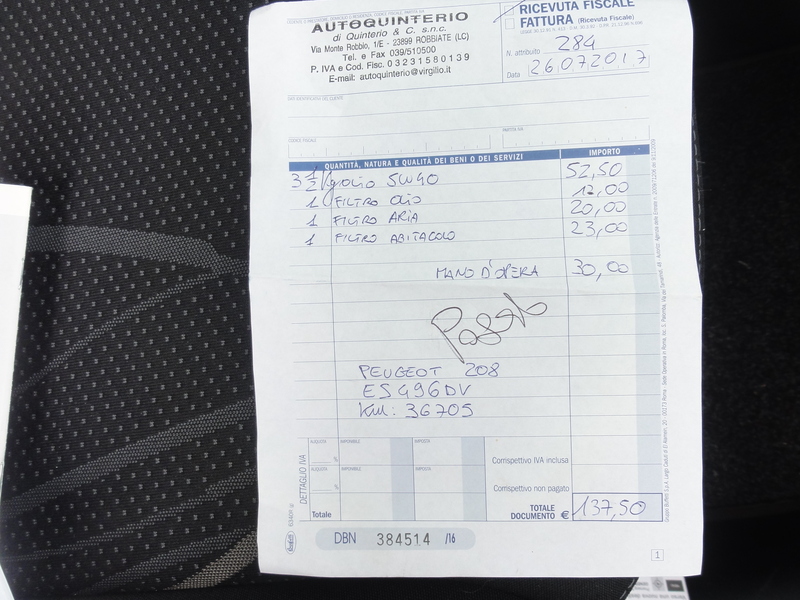 AUTOQUINTERIO
di Quinterio & C. s.n.c.
Via Monte Robbio, 1/E - 23899 ROBBIATE (LC)
Tel. e Fax 039/510500
P. IVA e Cod. Fisc. 03231580139
E-mail: autoquinterio@virgilio.it
RICEVUTA FISCALE
FATTURA (Ricevuta Fiscale)
N. attribuito 284
Data 26072017
CODICE FISCALE
PARTITA IVA
QUANTITÀ, NATURA E QUALITÀ DEI BENI O DEI SERVIZI IMPORTO
3 1/2 Kg olio 5W40 52,50
1 FILTRO OLIO 12,00
1 FILTRO ARIA 20,00
1 FILTRO ABITACOLO 23,00
MANO D'OPERA 30,00
Pagato
PEUGEOT 208
ES496DV
KM: 36705
DETTAGLIO IVA
ALIQUOTA IMPONIBILE IMPOSTA
%
ALIQUOTA IMPONIBILE IMPOSTA
%
Totale
Corrispettivo IVA inclusa
Corrispettivo non pagato
TOTALE DOCUMENTO € 137,50
DBN 384514 /16
1